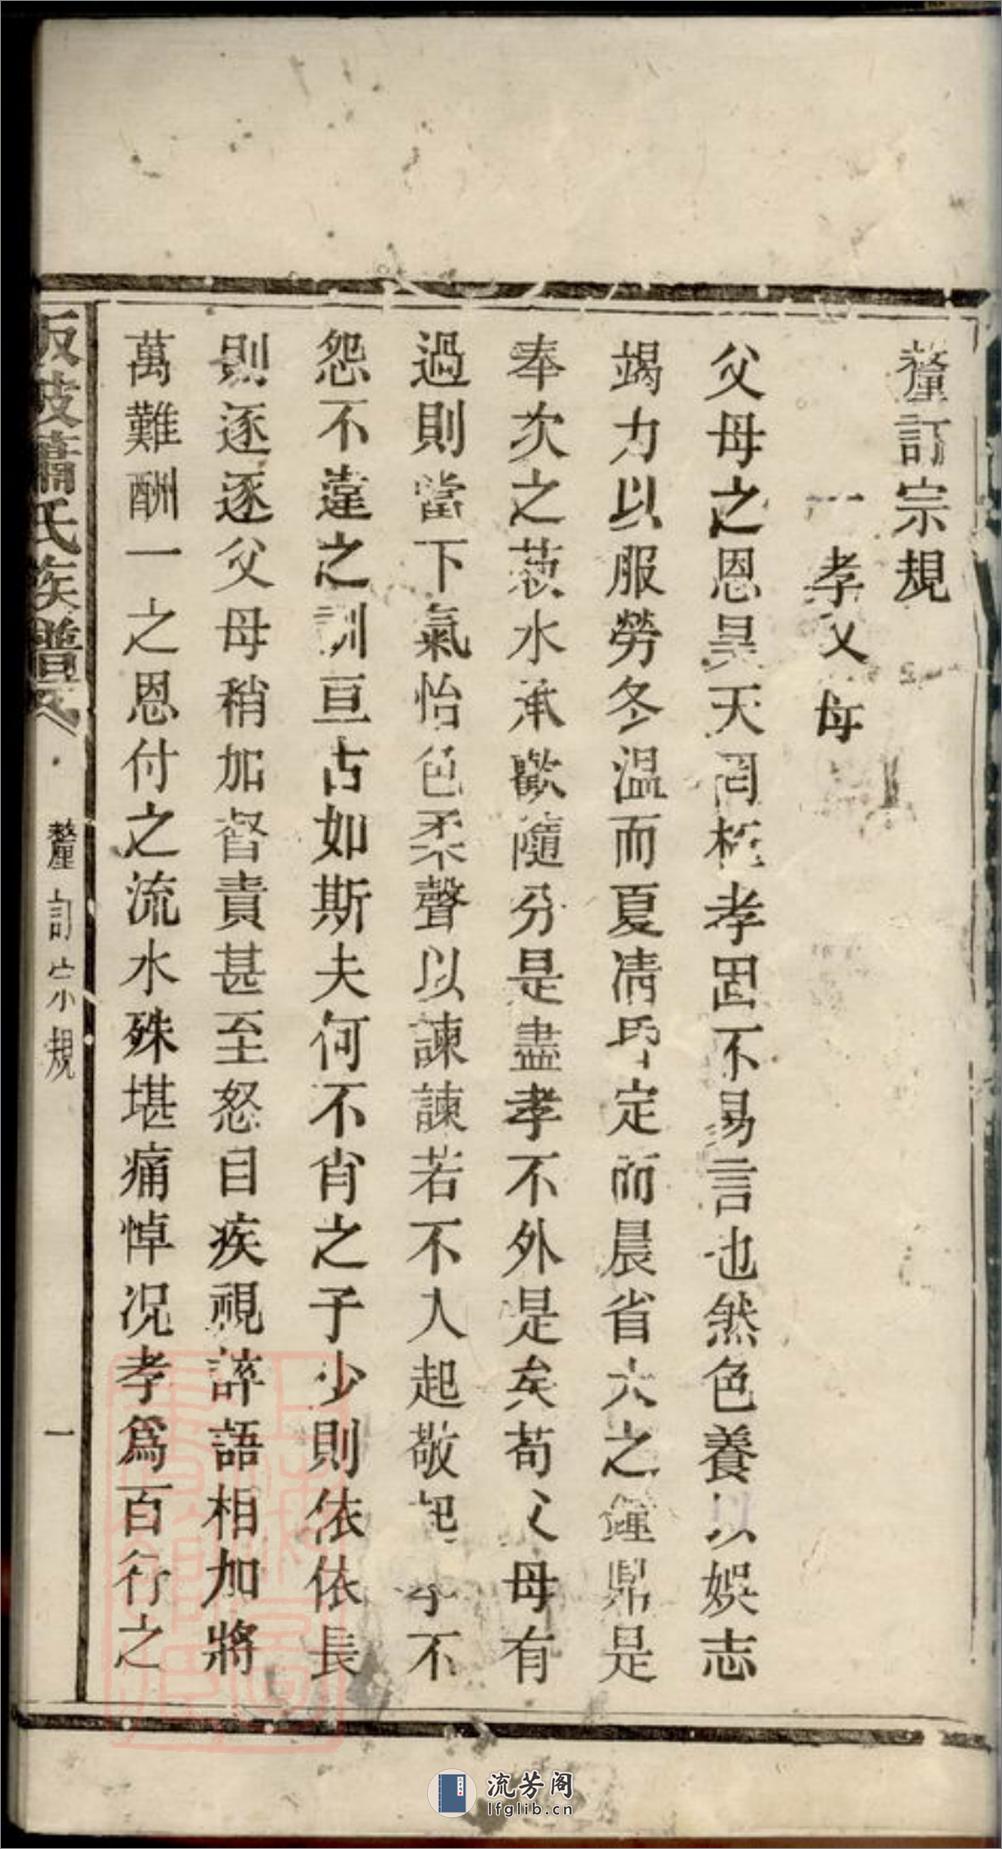 釐訂宗規
一孝父母
父母之恩昊天罔極孝固不易言也然色養以娛志
竭力以服勞冬温而夏凊昏定而晨省大之鐘鼎是
奉次之菽水承歡隨分是盡孝不外是矣苟父母有
過則當下氣怡色柔聲以諫諫若不入起敬起孝不
怨不違之訓亘古如斯夫何不肖之子少則依依長
則逐逐父母稍加督責甚至怒目疾視誶語相加將
萬難酬一之恩付之流水殊堪痛悼况孝爲百行之
蕭氏族譜
釐訂宗規
一
流芳阁
lfglib.cn